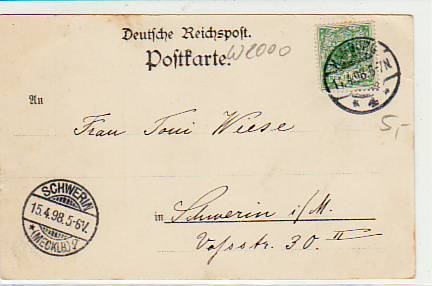 Deutsche Reichspost.
W2000
Postkarte.
14.4.98.5-7N
* 4 *
An
5,-
Frau Toni Wiese
SCHWERIN
15.4.98.5-6V.
*(MECKLB.)2
in Schwerin i/M.
Vossstr. 30. II